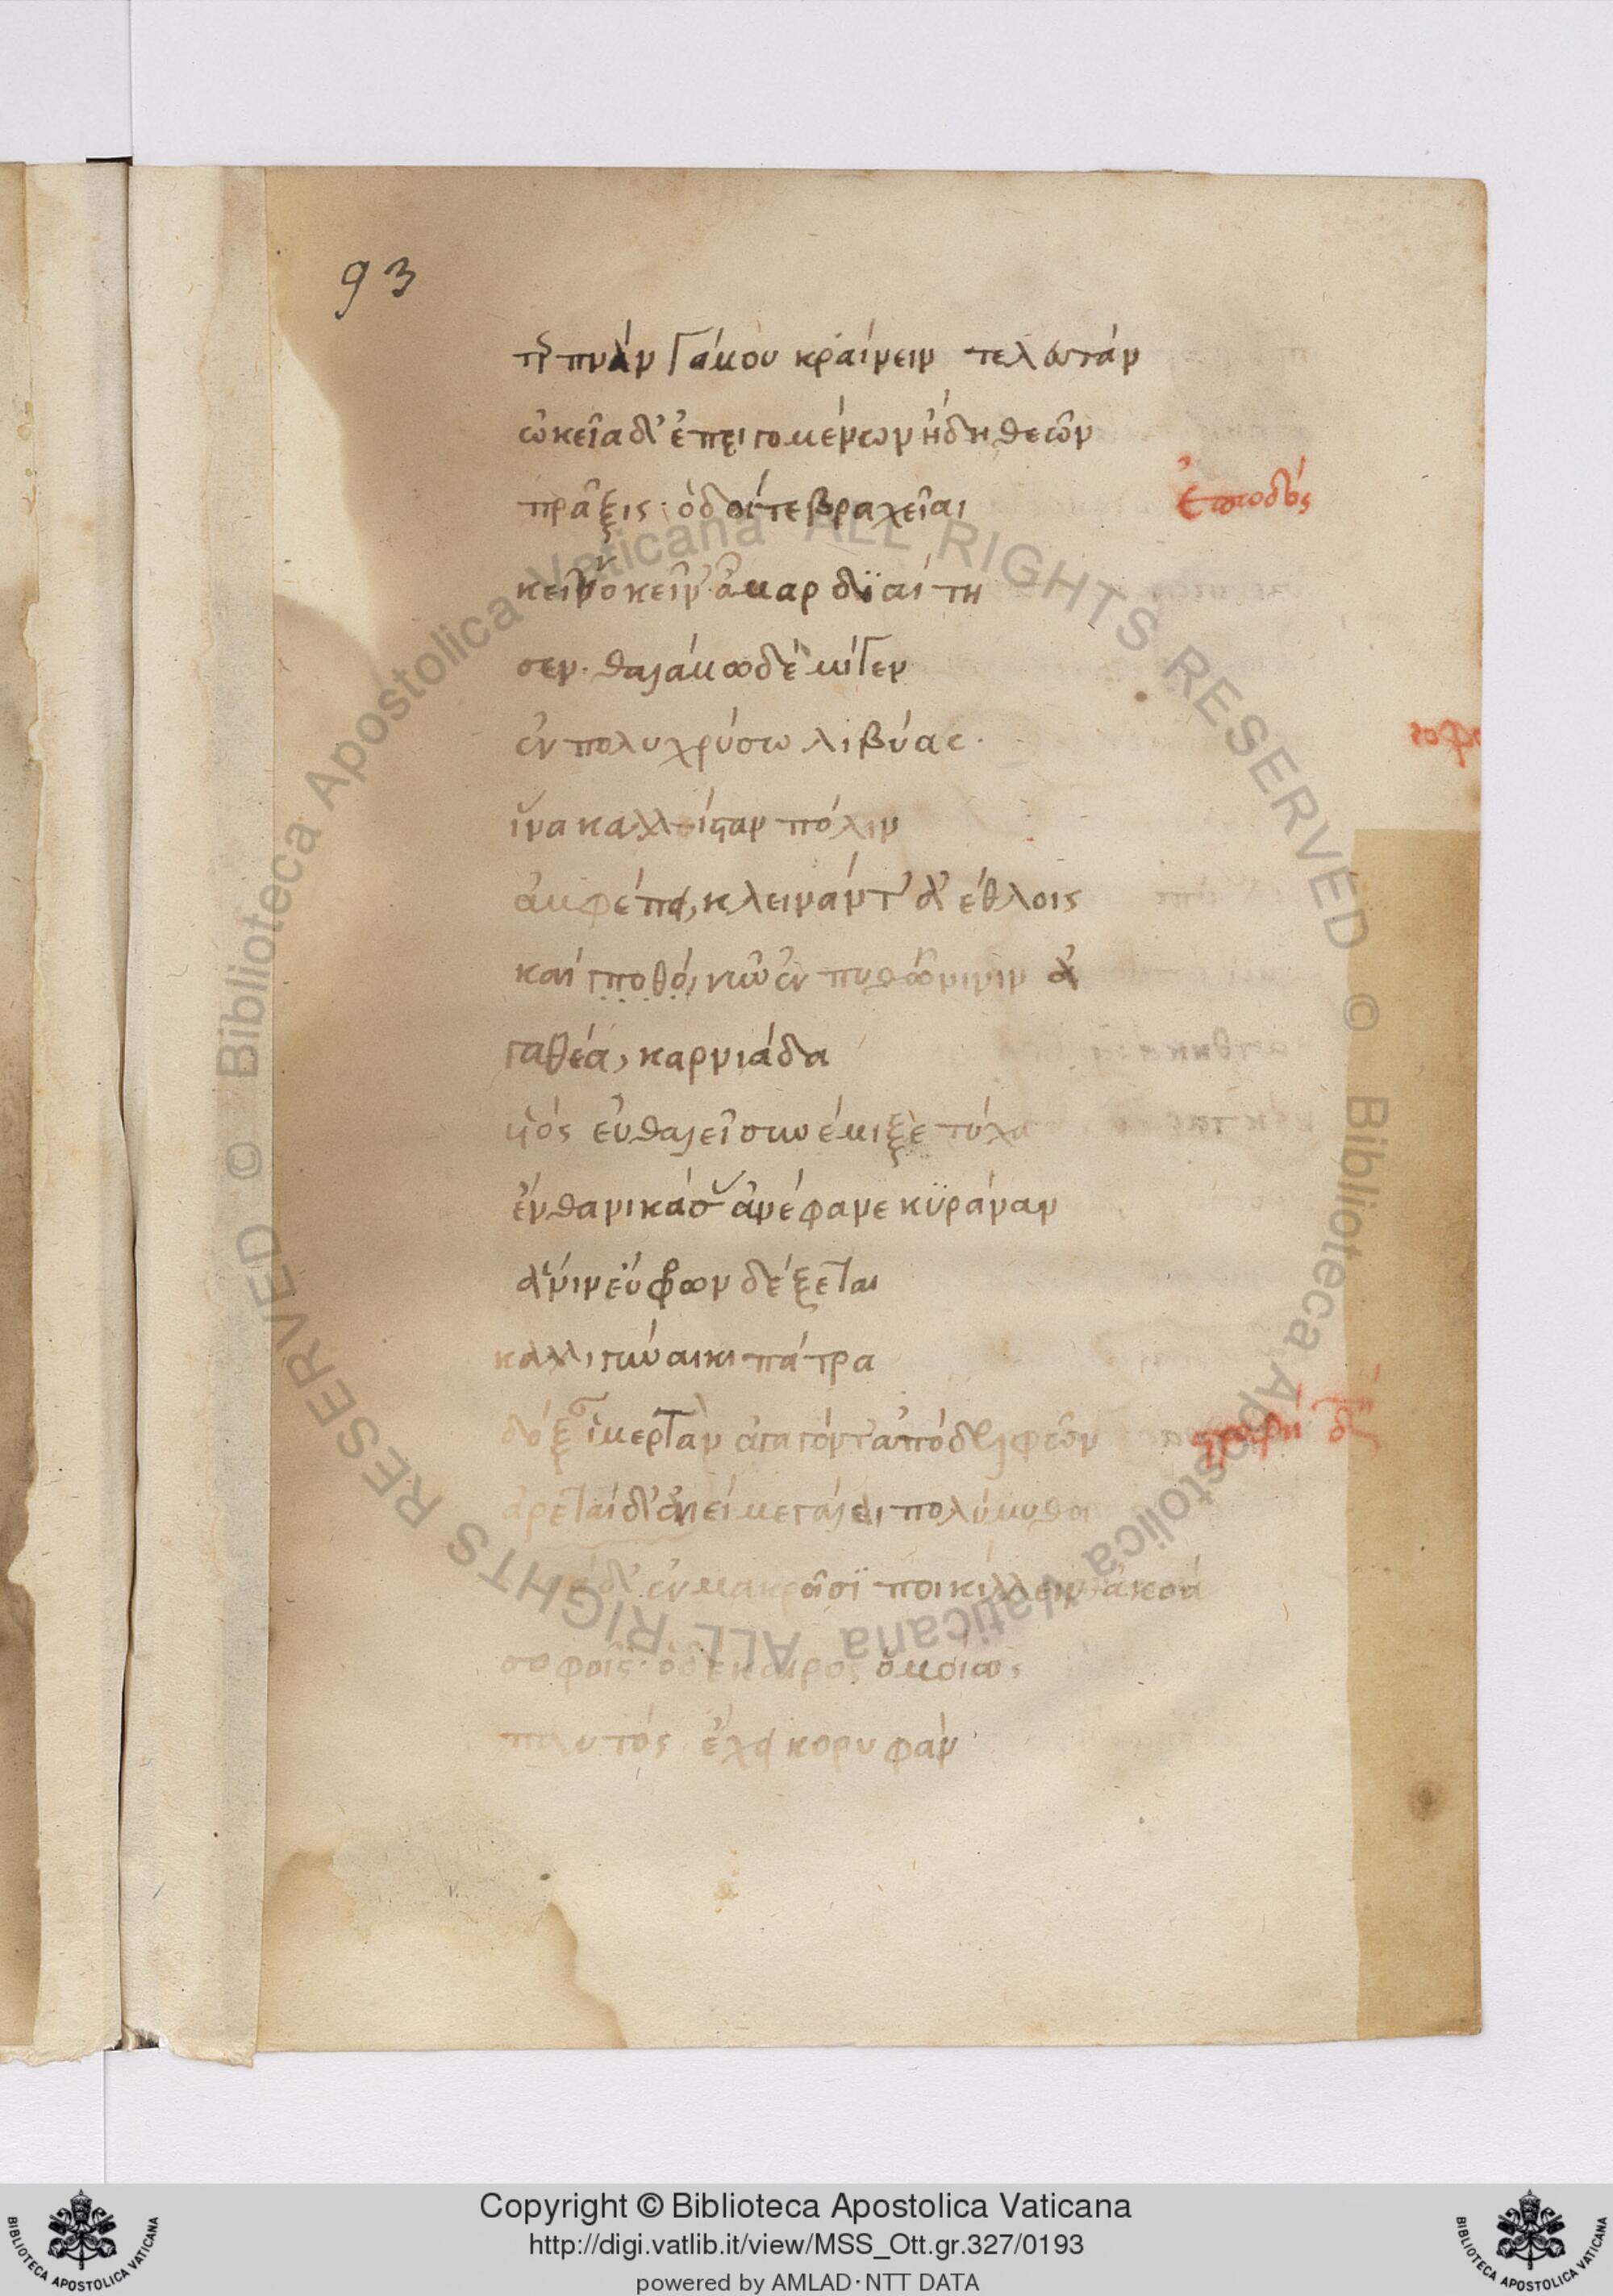 93
τερπνὰν γάμου κραίνειν τελευτάν
ὠκεῖα δ' ἐπειγομένων ἤδη θεῶν
πρᾶξις· ὁδοί τε βραχεῖαι
ἐπωδός
κεῖνο κεῖν' ἆμαρ δϊαίτη
σεν· θαλάμω δὲ μίγεν
ἐν πολυχρύσω λιβύας·
ἵνα καλλίσταν πόλιν
ἀμφέπει, κλεινάν τ' ἀέθλοις
καί ποθι, νῦν ἐν πυθῶνι νιν ἀ
γαθέα, καρνιάδα
υἱός εὐθαλεῖ συνέμιξε τύχα
ἔνθα νικάσας ἀνέφανε κϋράναν
ἅ νιν εὔφρων δέξεται
καλλιγύναικι πάτρα
δόξαν ἱμερτὰν ἀγαγόντ' ἀπό δελφῶν
ἀρεταί δ' αἰεί μεγάλαι πολύμυθοι
δ' ἐν μακροῖσϊ ποικίλλειν ἀκοά
σοφοῖς· ὁ δὲ καιρός ὁμοίως
παντός ἔχει κορυφάν
Copyright © Biblioteca Apostolica Vaticana
http://digi.vatlib.it/view/MSS_Ott.gr.327/0193
powered by AMLAD·NTT DATA